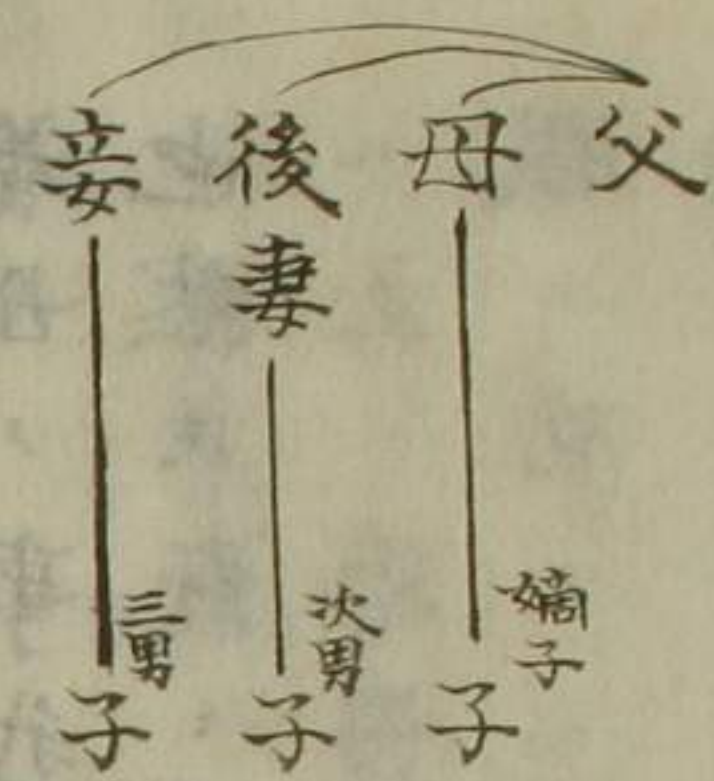 父
母
嫡子
子
後妻
次男
子
妾
三男
子